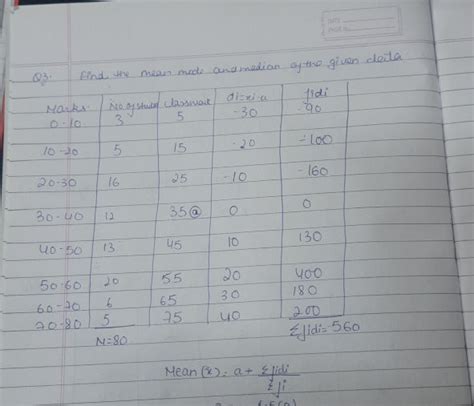 DATE
PAGE
Q3. Find the mean mode and median of the given data
Marks. No of stud Classmark di=xi-a fidi
0-10 3 5 -30 -90
10-20 5 15 -20 -100
20-30 16 25 -10 -160
30-40 12 35@ 0 0
40-50 13 45 10 130
50-60 20 55 20 400
60-70 6 65 30 180
70-80 5 75 40 200
N=80 Σfidi=560
Mean(x̄)= a+ Σfidi
Σfi